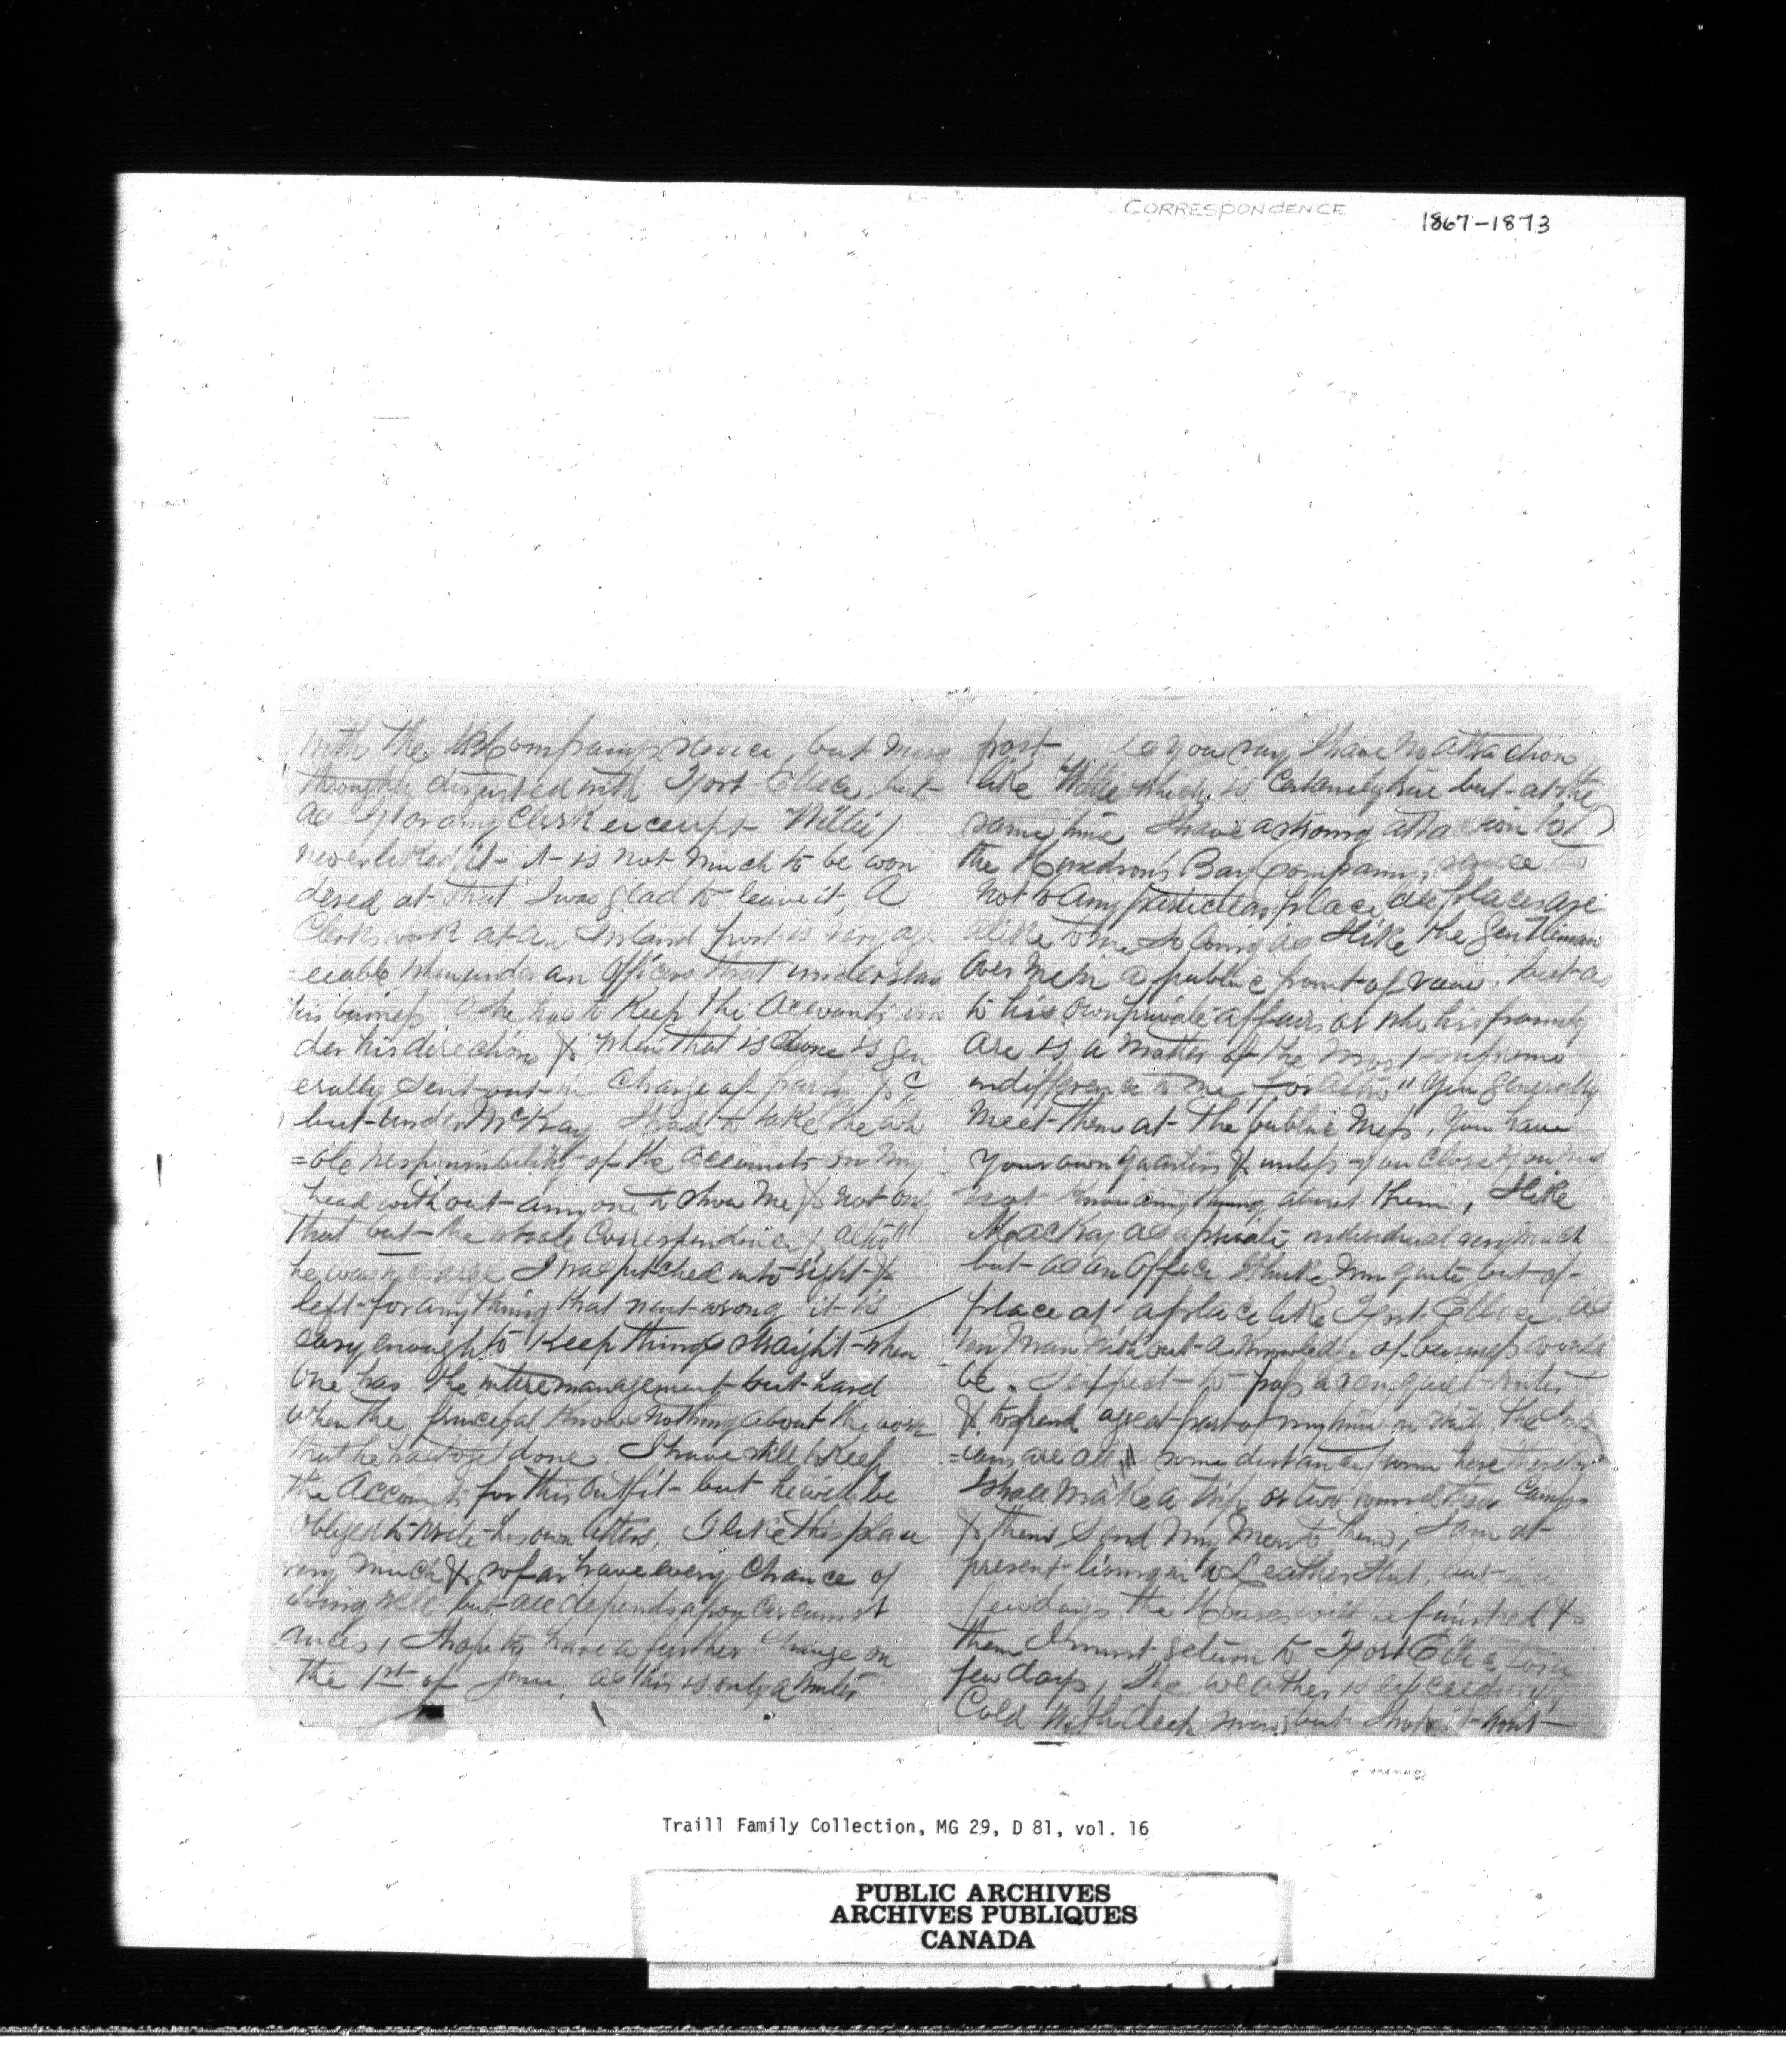 CORRESPONDENCE
1867-1873
with the HBCompanys service, but more
disgusted with Fort Ellice but
as I for any Clerk except "Willie)
never liked it it is not much to be won
dered at that I was glad to leave it, A
Clerks work at an Inland post is very agre
=eeable when under an Officer that understan
his business as he has to keep the Accounts un
der his directions & when that is done is gen
erally sent out in charge of party &c
but under McKay I had to take the wh
=ole responsibility of the accounts on my
head without any one to show me & not only
that but the whole Correspondence & altho"
he was in charge I was pitched into right &
left for any thing that went wrong it is
easy enough to keep things straight when
One has the intire management but hard
when the principal knows nothing about the work
that he has to get done. I have still to keep
the Accounts for this Outfit but he will be
obliged to write his own letters, I like this place
very much & so far have every chance of
doing well but all depends apon circumst
ances, I hope to have a further change on
the 1st of June, as this is only a winter
post, As you say I have no attachion
like "Willie which is certainly true but at the
same time I have a strong attachion to
the Hundson's Bay Company, service
not to any particular place, all places are
alike to me so long as I like the Gentleman
over me in a public point of view. but as
to his own private affairs or who his family
are is a matter of the most supreme
indifference to me, for altho" you generally
meet them at the public mess, you have
your own quarters & unless you chose you need
not know any thing about them, I like
MacKay as a private individual very much
but as an Officer I think him quite out of
place at a place like Fort Ellice as
any man without a knowledge of business would
be. I expect to pass a very quiet winter
& to spend a great part of my time in study. the Ind
=ians are all some distance from here therefor
I shall make a trip or two round their Camps
& then send my men to them, I am at
present living in a Leather Hut, but in a
few days the Houses will be finished &
then I must return to Fort Ellice for a
few days, The weather is exceedingly
Cold with deep snow, but I hope it wont
Traill Family Collection, MG 29, D 81, vol. 16
PUBLIC ARCHIVES
ARCHIVES PUBLIQUES
CANADA